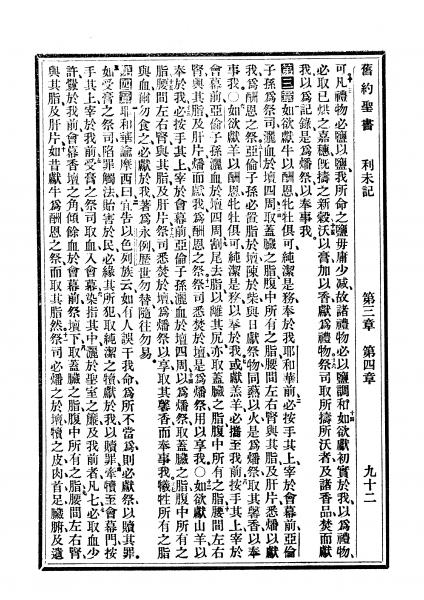 舊約聖書 利未記 第三章 第四章 九十二
可凡禮物必鹽以鹽我所命之鹽毋庸少減故諸禮物必以鹽調和如欲獻初實於我以爲禮物
必取已烘之嘉穗旣擣之新穀沃以膏加以香獻爲禮物祭司取所擣所沃者及諸香品焚而獻
我以爲記錄是爲燔祭以奉事我
第三章如欲獻牛以酬恩牝牡俱可純潔是務奉於我耶和華前必按手其上宰於會幕前亞倫
子孫爲祭司灑血於壇四周取蓋臟之脂腹中所有之脂腰間左右腎與其脂及肝片悉燔以獻
我爲酬恩之祭亞倫子孫必置脂於壇陳於柴與日獻祭物同爇以火是爲燔祭取其馨香以奉
事我○如欲獻羊以酬恩牝牡俱可純潔是務以奉於我或獻羔羊必攜至我前按手其上宰於
會幕前亞倫子孫灑血於壇四周割尾去脂以離其尻亦取蓋臟之脂腹中所有之脂腰間左右
腎與其脂及肝片燔而獻我爲酬恩之祭祭司悉焚於壇是爲燔祭用以享我○如欲獻山羊以
奉於我必按手其上宰於會幕前亞倫子孫灑血於壇四周以爲燔祭取蓋臟之脂腹中所有之
脂腰間左右腎與其脂及肝片祭司悉焚於壇爲燔祭以享取其馨香而奉事我犧牲所有之脂
與血爾勿食之必獻於我著爲永例歷世勿替隨往勿易
第四章耶和華諭摩西曰告以色列族云如有人誤干我命爲所不當爲則必獻祭以贖其罪
如受膏之祭司陷罪觸法貽害於民必緣其所犯取純潔之犢獻於我以贖罪牽犢至會幕門按
手其上宰於我前受膏之祭司取血入會幕染指其中灑於聖室之簾及我前者凡七必取血少
許釁於我前會幕香壇之角傾餘血於會幕前祭壇下取蓋臟之脂腹中所有之脂腰間左右腎
與其脂及肝片如昔獻牛爲酬恩之祭而取其脂然祭司必燔之於壇犢之皮肉首足臟腑及遺